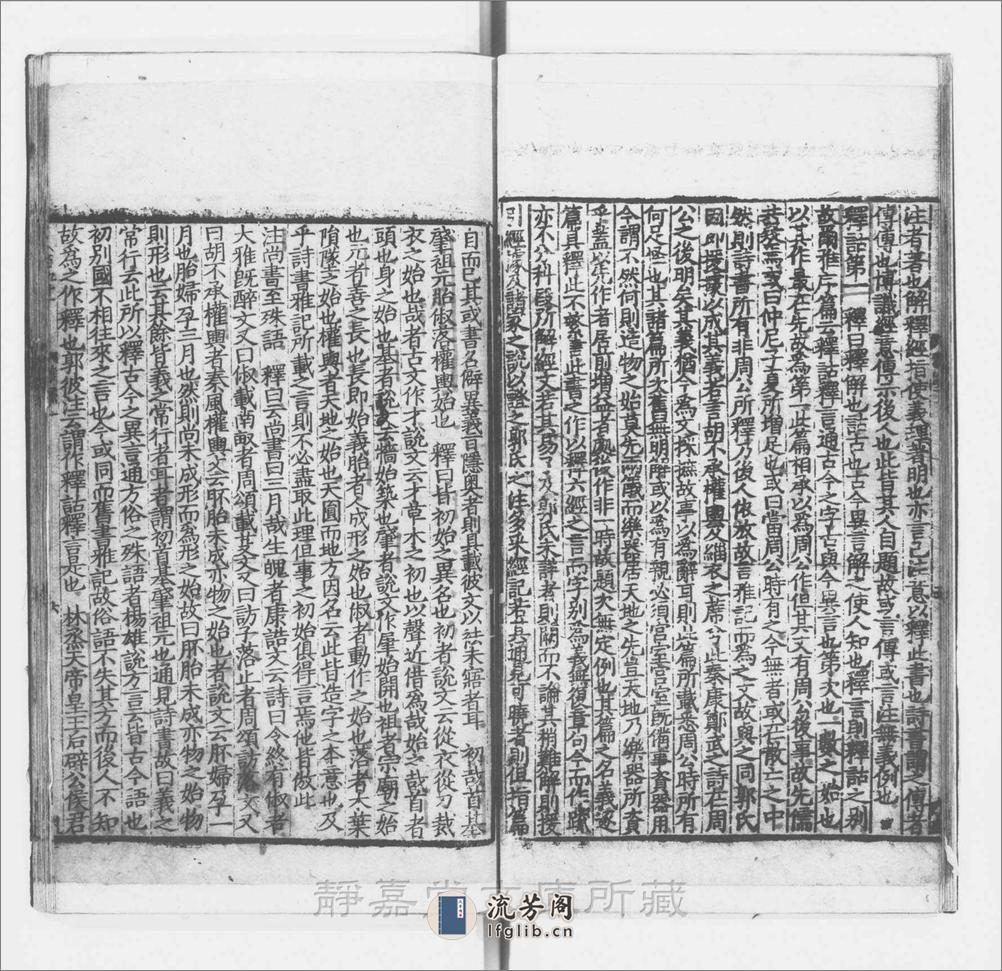 注者著也解釋經指使義理著明也亦言己注意以釋此書也詩書謂之傳者
傳傳也博識經意傳示後人也此皆其人自題故或言傳或言注無義例也
釋詁第一 釋曰釋解也詁古也古今異言解之使人知也釋言則釋詁之別
故爾雅序篇云釋詁釋言通古今之字古與今異言也第次也一數之始也
以其作最在先故為第一此篇相承以為周公作但其文有周公後事故先儒
共疑焉或曰仲尼子夏所增足也或曰當周公時有之今無者或在散亡之中
然則詩書所有非周公所釋乃後人依放故言雅記而為之文故與之同郭氏
因即援據以成其義若言胡不承權輿及緇衣之蓆兮此秦康鄭武之詩在周
公之後明矣其義猶今為文採摭故事以為辭耳則此篇所載悉周公時所有
何足怪也其諸篇所次舊無明解或以為有親必須宮室宮室既備事資器用
今謂不然何則造物之始莫先兩儀而樂器居天地之先豈天地乃樂器所資
乎蓋以先作者居前增益者處後作非一時故題次無定例也其篇之名義逐
篇具釋此不繁言此書之作以釋六經之言而字別為義無復章句今而作疏
亦不分科段所解經文若其易了及郭氏未詳者則闕而不論其稍難解則援
引經據及諸家之說以證之郭氏之注多采經記若其通見可曉者則但指篇
目而已其或書名僻異義旨隱奧者則具載彼文以祛未寤者耳 初哉首基
肇祖元胎俶落權輿始也 釋曰皆初始之異名也初者說文云從衣從刀裁
衣之始也哉者古文作才說文云才草木之初也以聲近借為哉始之哉首者
頭也身之始也基者說文云牆始築也肇者說文作肁始開也祖者宗廟之始
也元者善之長也長即始義胎者人成形之始也俶者動作之始也落者木葉
隕墜之始也權輿者天地之始也天圓而地方因名云此皆造字之本意也及
乎詩書雅記所載之言則不必盡取此理但事之初始俱得言焉他皆倣此
注尚書至殊語 釋曰云尚書曰三月哉生魄者康誥文云詩曰令終有俶者
大雅既醉文又曰俶載南畝者周頌載芟文又曰訪予落止者周頌訪落文又
曰胡不承權輿者秦風權輿文云胚胎未成亦物之始也者說文云胚婦孕一
月也胎婦孕三月也然則尚未成形而為形之始故曰胚胎未成亦物之始物
則形也云其餘皆義之常行者耳者謂初首基肇祖元也通見詩書故曰義之
常行云此所以釋古今之異言通方俗之殊語者楊雄說方言云皆古今語也
初別國不相往來之言也今或同而舊書雅記故俗語不失其方而後人不知
故為之作釋也郭彼注云謂作釋詁釋言是也 林烝天帝皇王后辟公侯君
靜嘉堂文庫所藏
流芳阁
lfglib.cn